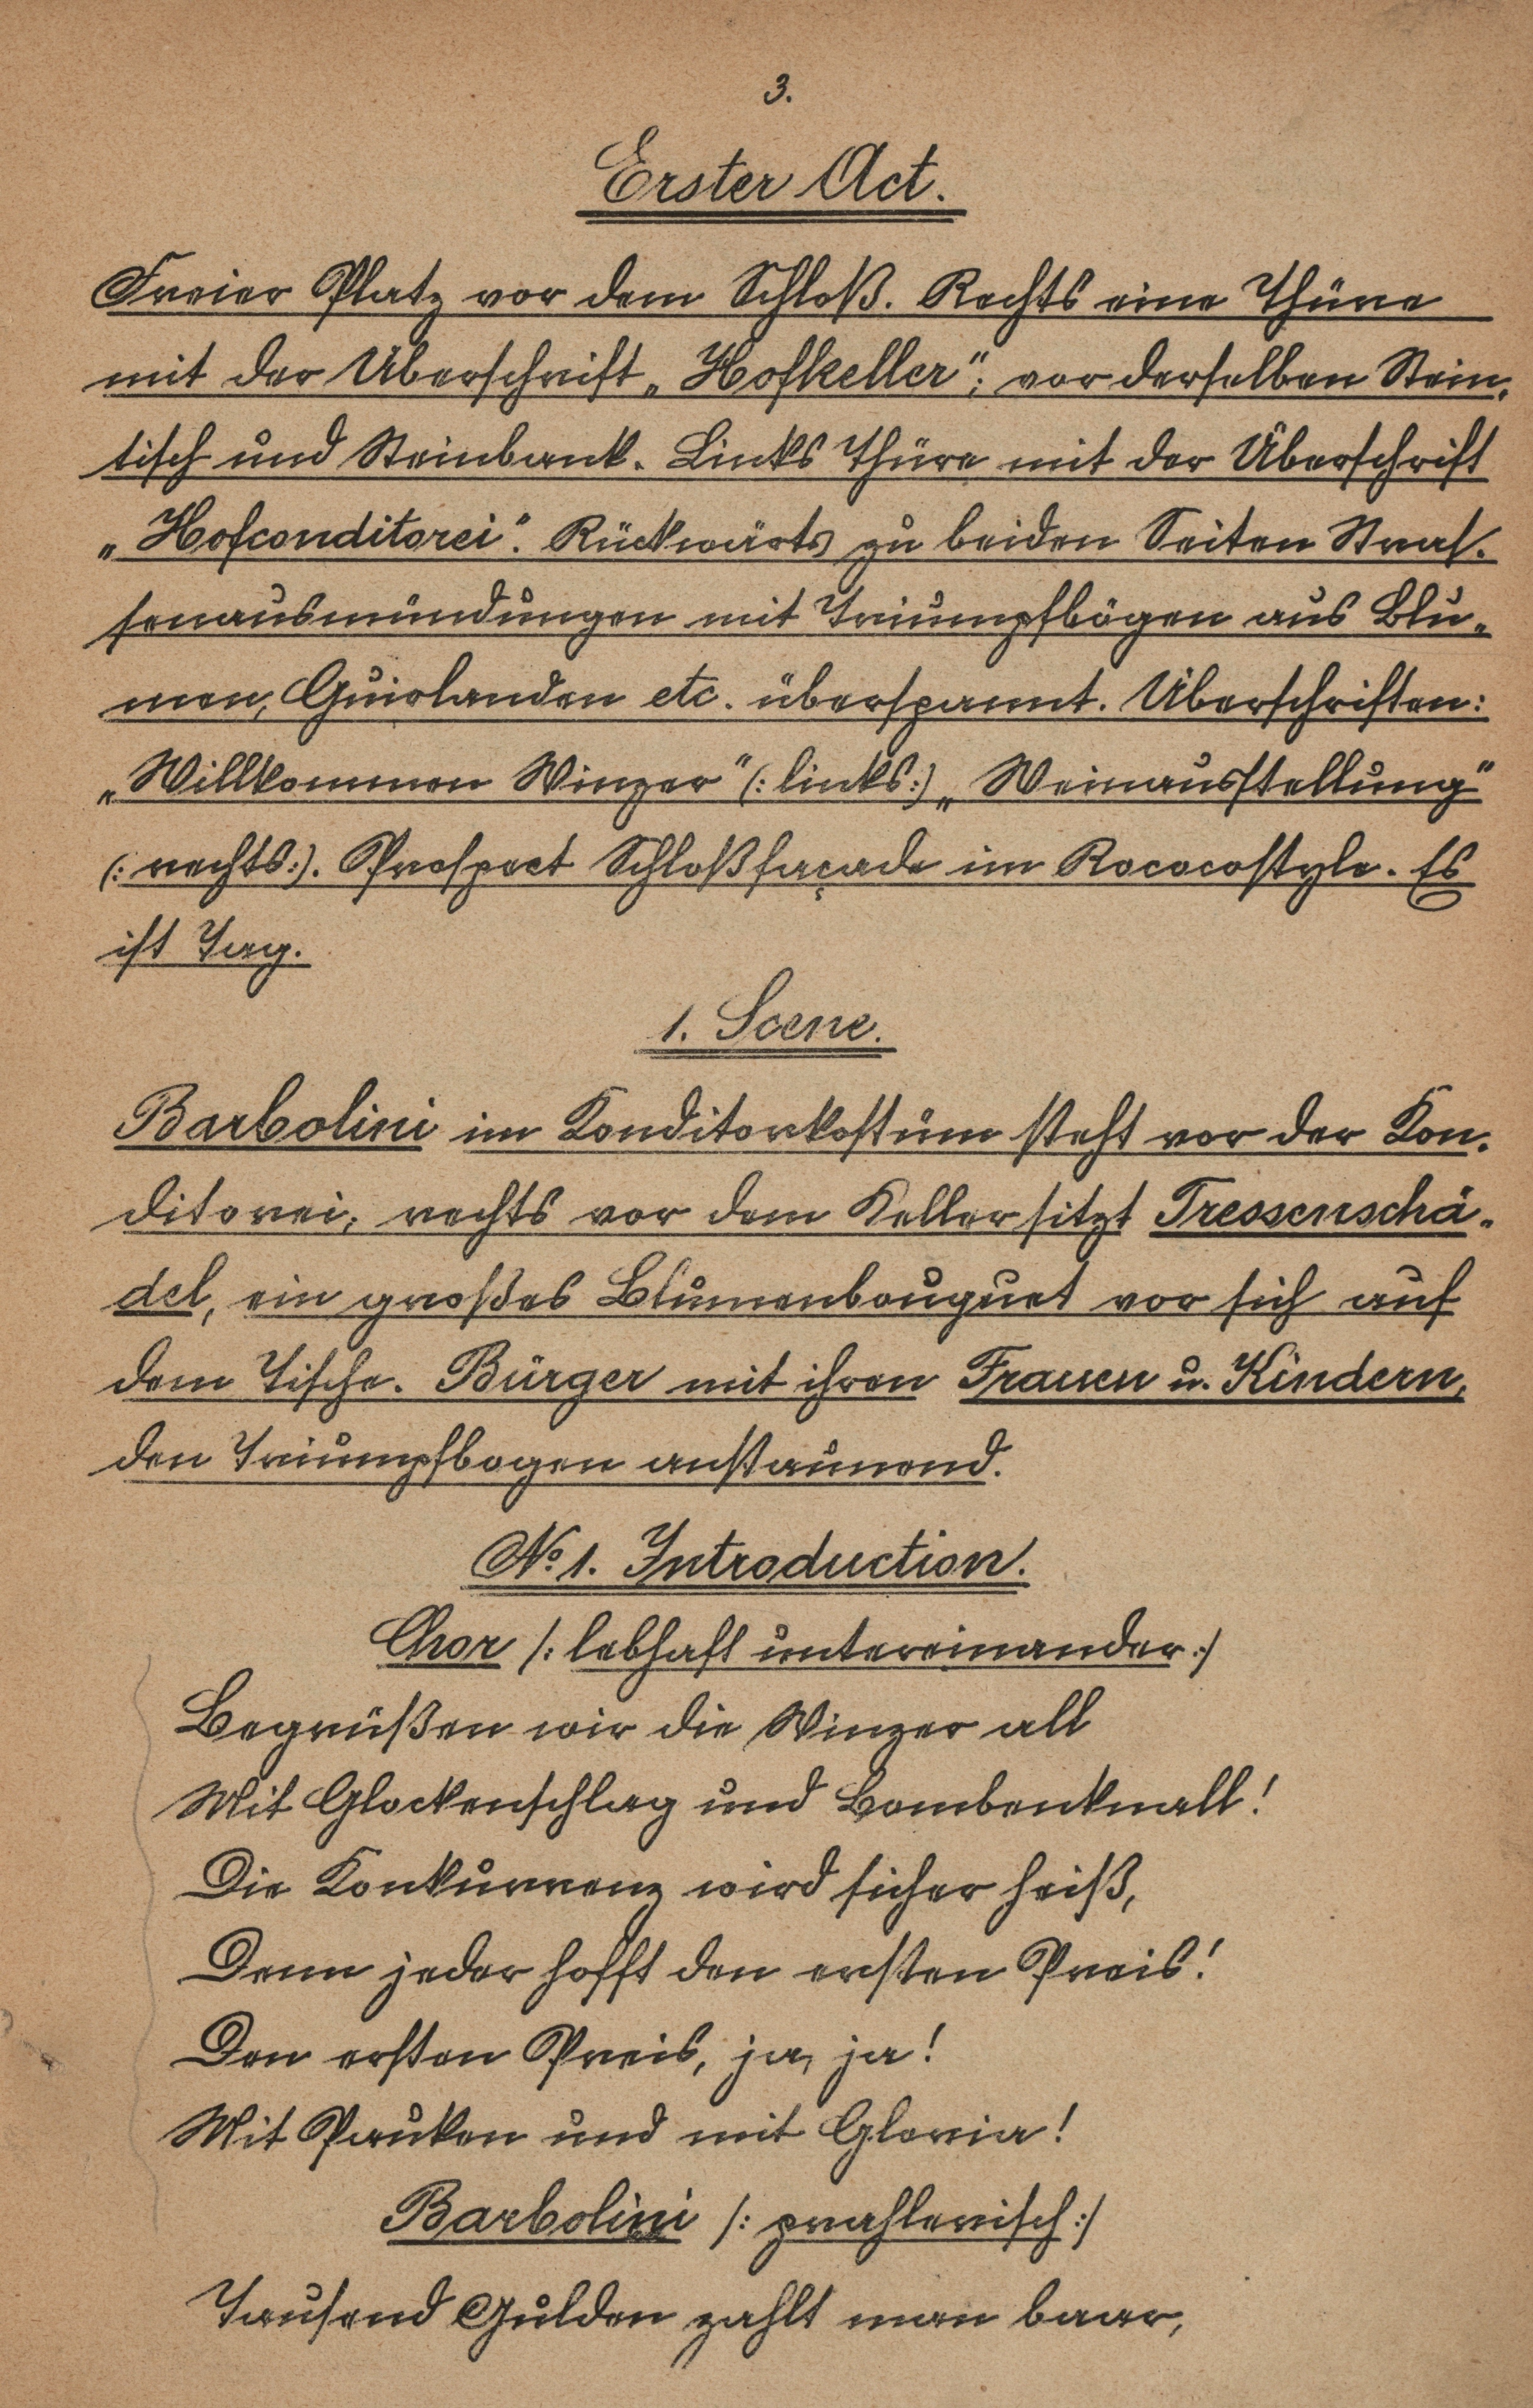 3.
Erster Act.
Freier Platz vor dem Schloß. Rechts eine Thüre
mit der Überschrift „Hofkeller"; vor derselben Stein-
tisch und Steinbank. Links Thüre mit der Überschrift
„Hofconditorei". Rückwärts zu beiden Seiten Stras-
senausmündungen mit Triumpfbögen aus Blu-
men, Guirlanden etc. überspannt. Überschriften:
„Willkommen Winzer" (: links :) „Weinausstellung"
(: rechts :). Prospect Schloßfaçade im Rococostyle. Es
ist Tag.
1. Scene.
Barbolini im Konditorkostüm steht vor der Kon-
ditorei, rechts vor dem Keller sitzt Tressenschä-
del, ein großes Blumenbouquet vor sich auf
dem Tische. Bürger mit ihren Frauen u. Kindern,
den Triumpfbogen anstaunend.
No. 1. Introduction.
Chor /: lebhaft untereinander :/
Begrüßen wir die Winzer all
Mit Glockenschlag und Bombenknall!
Die Konkurrenz wird sicher heiß,
Denn jeder hofft den ersten Preis!
Den ersten Preis, ja, ja!
Mit Pauken und mit Gloria!
Barbolini /: prahlerisch :/
Tausend Gulden zahlt man baar,